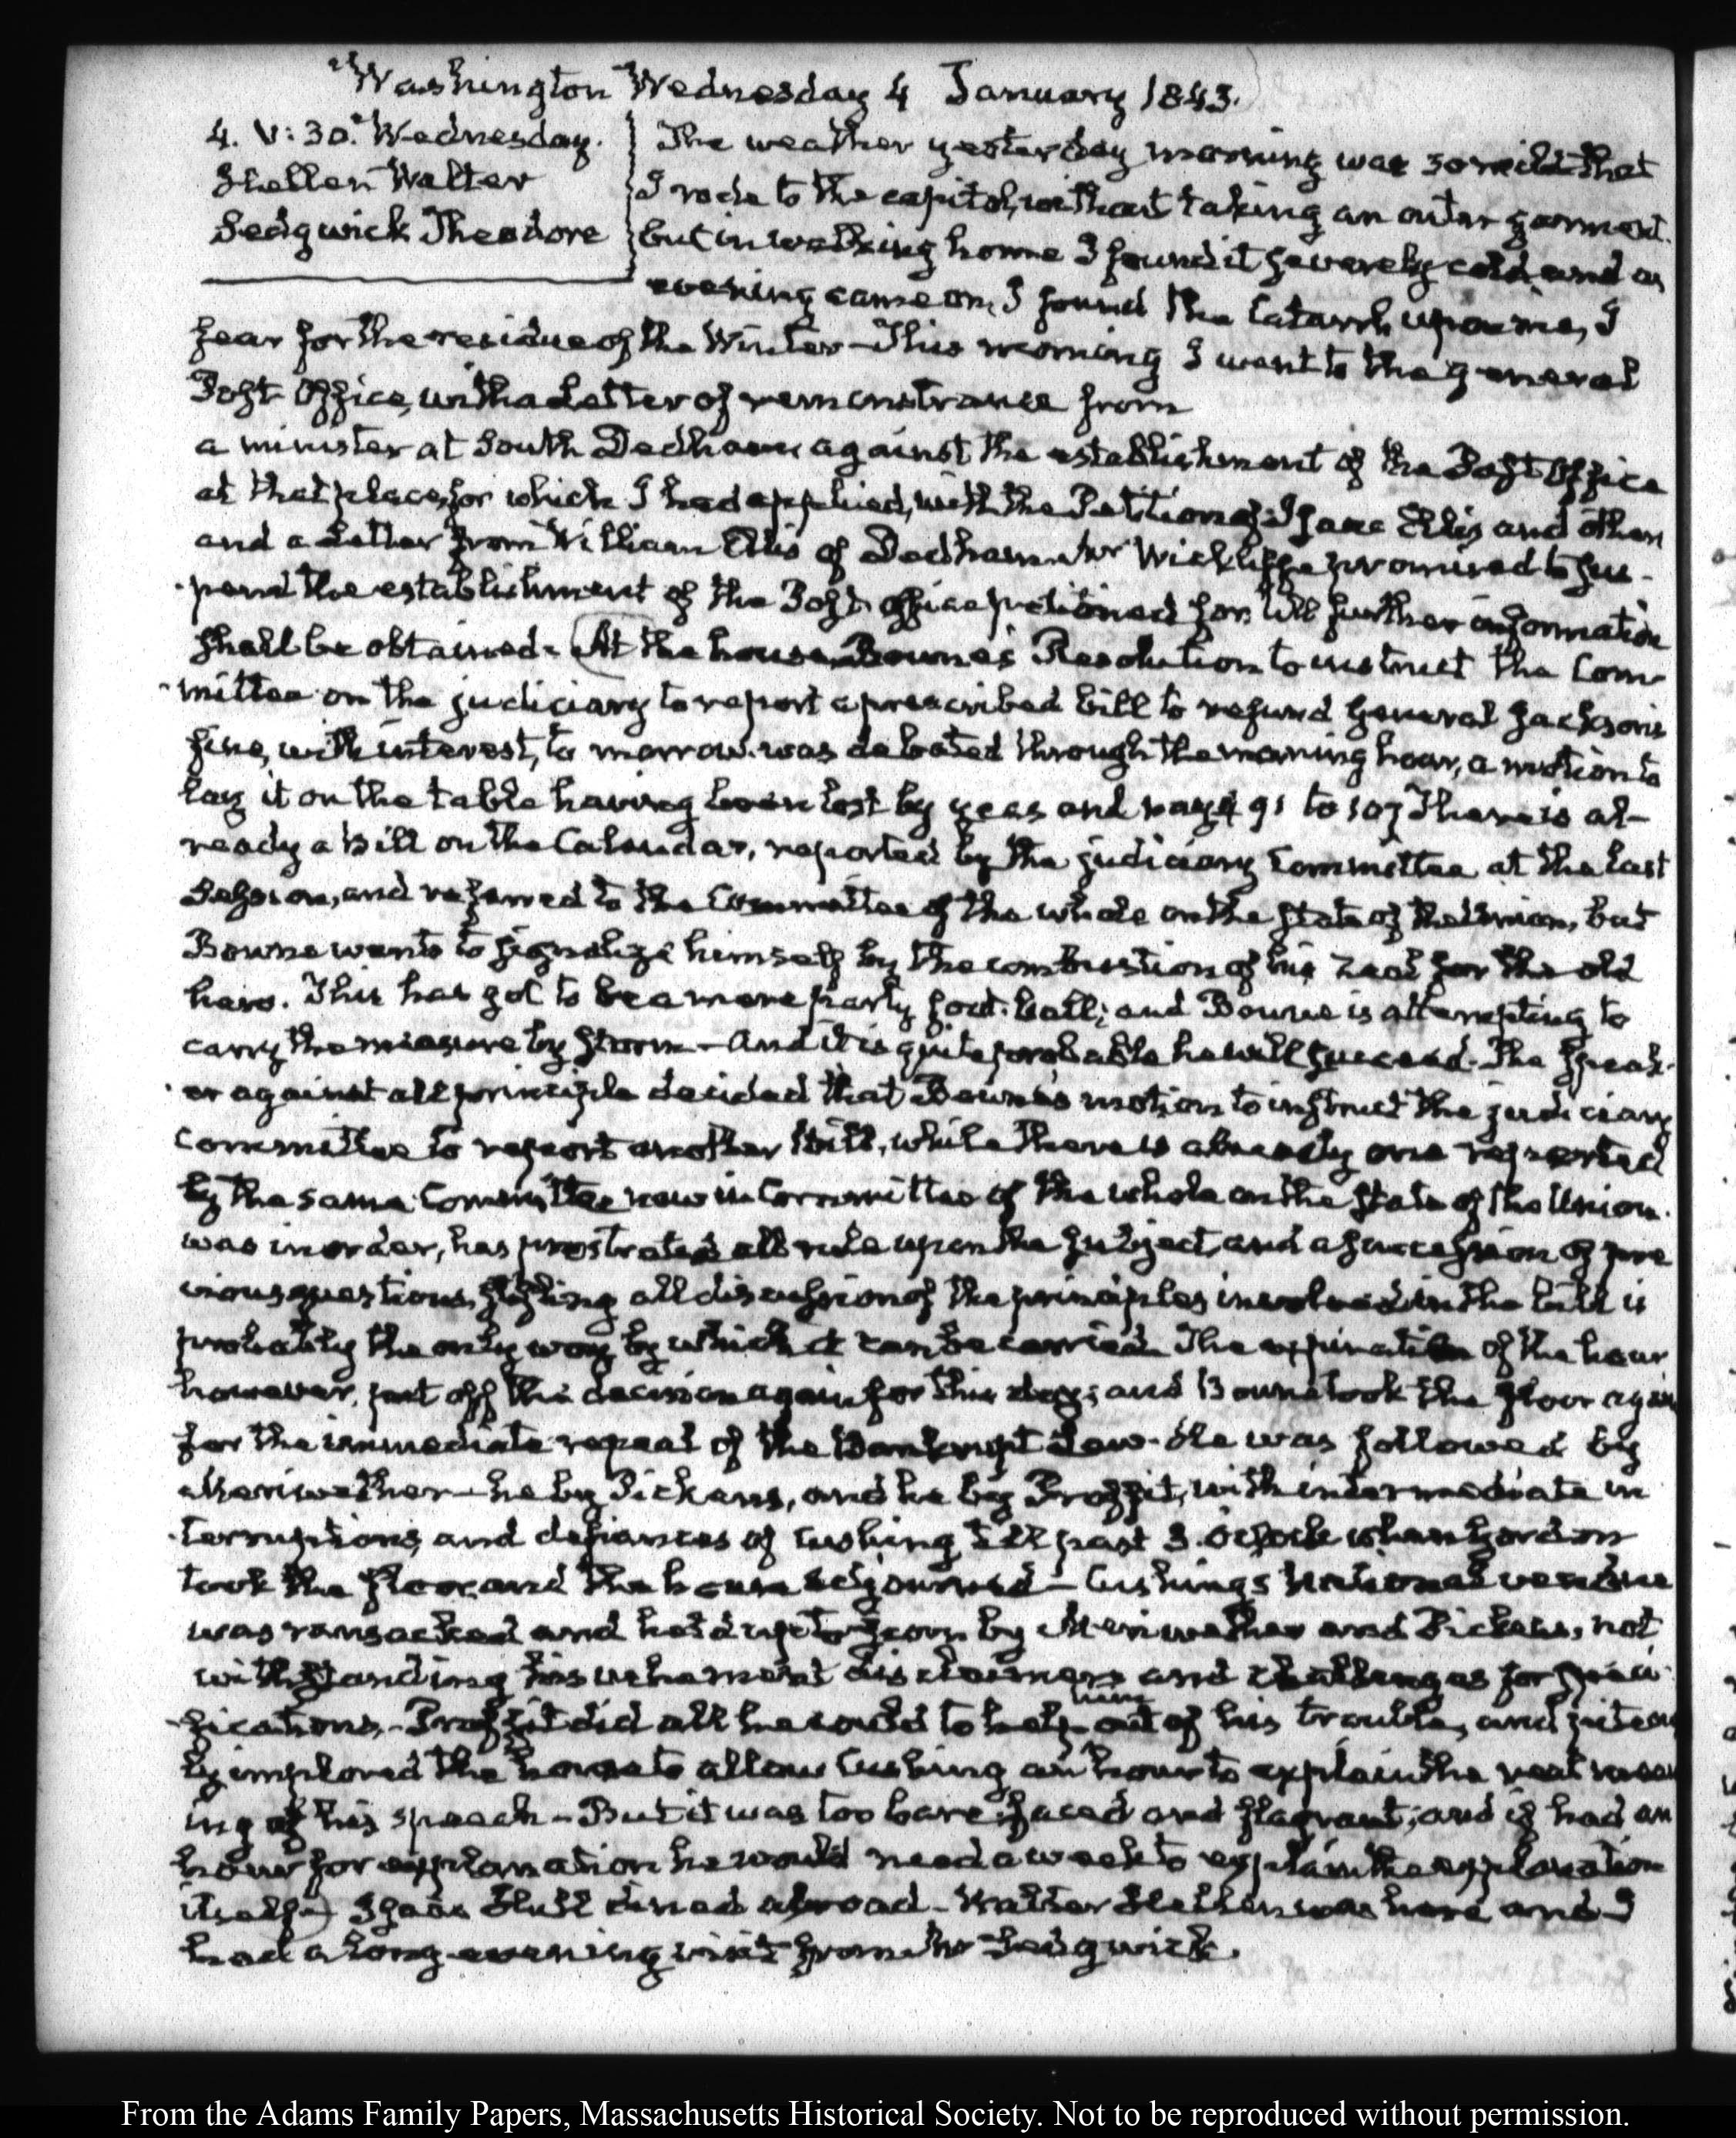 Washington Wednesday 4 January 1843.
4. V: 30. Wednesday.
Hellen Walter
Sedgwick Theodore
The weather yesterday morning was so mild that
I rode to the capitol, without taking an outer garment.
but in walking home I found it severely cold, and as
evening came on, I found the Catarrh upon me, I
fear for the residue of the Winter - This morning I went to the general
Post Office, with a Letter of remonstrance from
a minister at South Dedham against the establishment of the Post Office
at that place, for which I had applied, with the Petition of Isaac Ellis and others
and a Letter from William Ellis of Dedham. Mr Wickliffe promised to sus-
pend the establishment of the Post office petitioned for, till further information
shall be obtained - At the house, Bowne's Resolution to instruct the Com-
mittee on the judiciary to report a prescribed bill to refund General Jackson's
fine, with interest, to morrow. was debated through the morning hour, a motion to
lay it on the table having been lost by yeas and nays 91 to 107 There is al-
ready a Bill on the Calendar, reported by the judiciary Committee at the last
Session, and referred to the Committee of the whole on the State of the Union, but
Bowne wants to signalize himself by the combustion of his zeal for the old
hero. This has got to be a mere party foot-ball; and Bowne is attempting to
carry the measure by storm - And it is quite probable he will succeed. The Speak-
er against all principle decided that Bowne's motion to instruct the judiciary
Committee to report another Bill, while there is already one reported
by the same Committee now in Committee of the whole on the State of the Union.
was in order, has prostrated all rule upon the subject, and a succession of pre
vious questions, stifling all discussion of the principles involved in the bill is
probably the only way by which it can be carried. The expiration of the hour
however, put off the decision again for this day; and Bowne took the floor again
for the immediate repeal of the Bankrupt Law. He was followed by
Meriwether - he by Pickens, and he by Proffit, with intermediate in
terruptions, and defiances of Cushing, till past 3. O'clock when Gordon
took the floor, and the house adjourned - Cushing's National vendue
was ransacked and held up to scorn by Meriwether and Pickens, not
withstanding his vehement disclaimers and challenges for speci-
fications, - Proffit did all he could to help him out of his trouble, and piteous
ly implored the house to allow Cushing an hour to explain the real mean
ing of his speech - But it was too barefaced and flagrant; and if had an
hour for explanation he would need a week to explain the explanation
itself - Isaac Hull dined abroad - Walter Hellen was here and I
had a long evening visit from Mr Sedgwick.
From the Adams Family Papers, Massachusetts Historical Society. Not to be reproduced without permission.